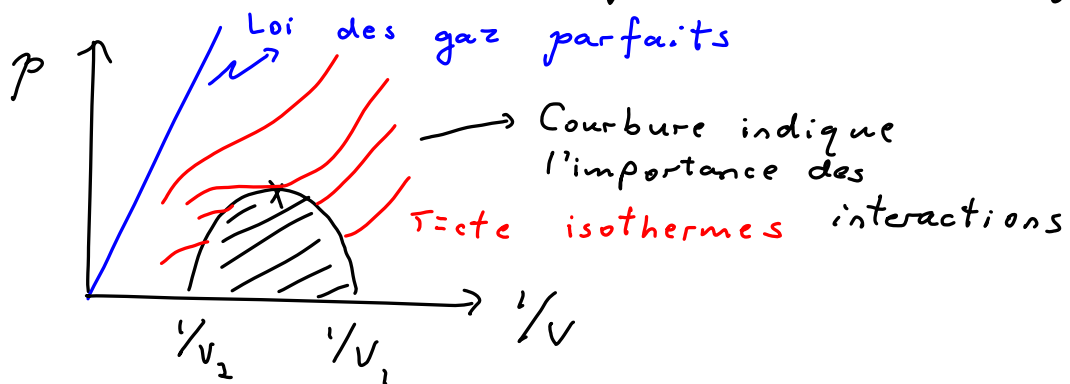 Loi des gaz parfaits
p
Courbure indique
l'importance des
interactions
T=cte isothermes
1/V
1/V₂
1/V₁